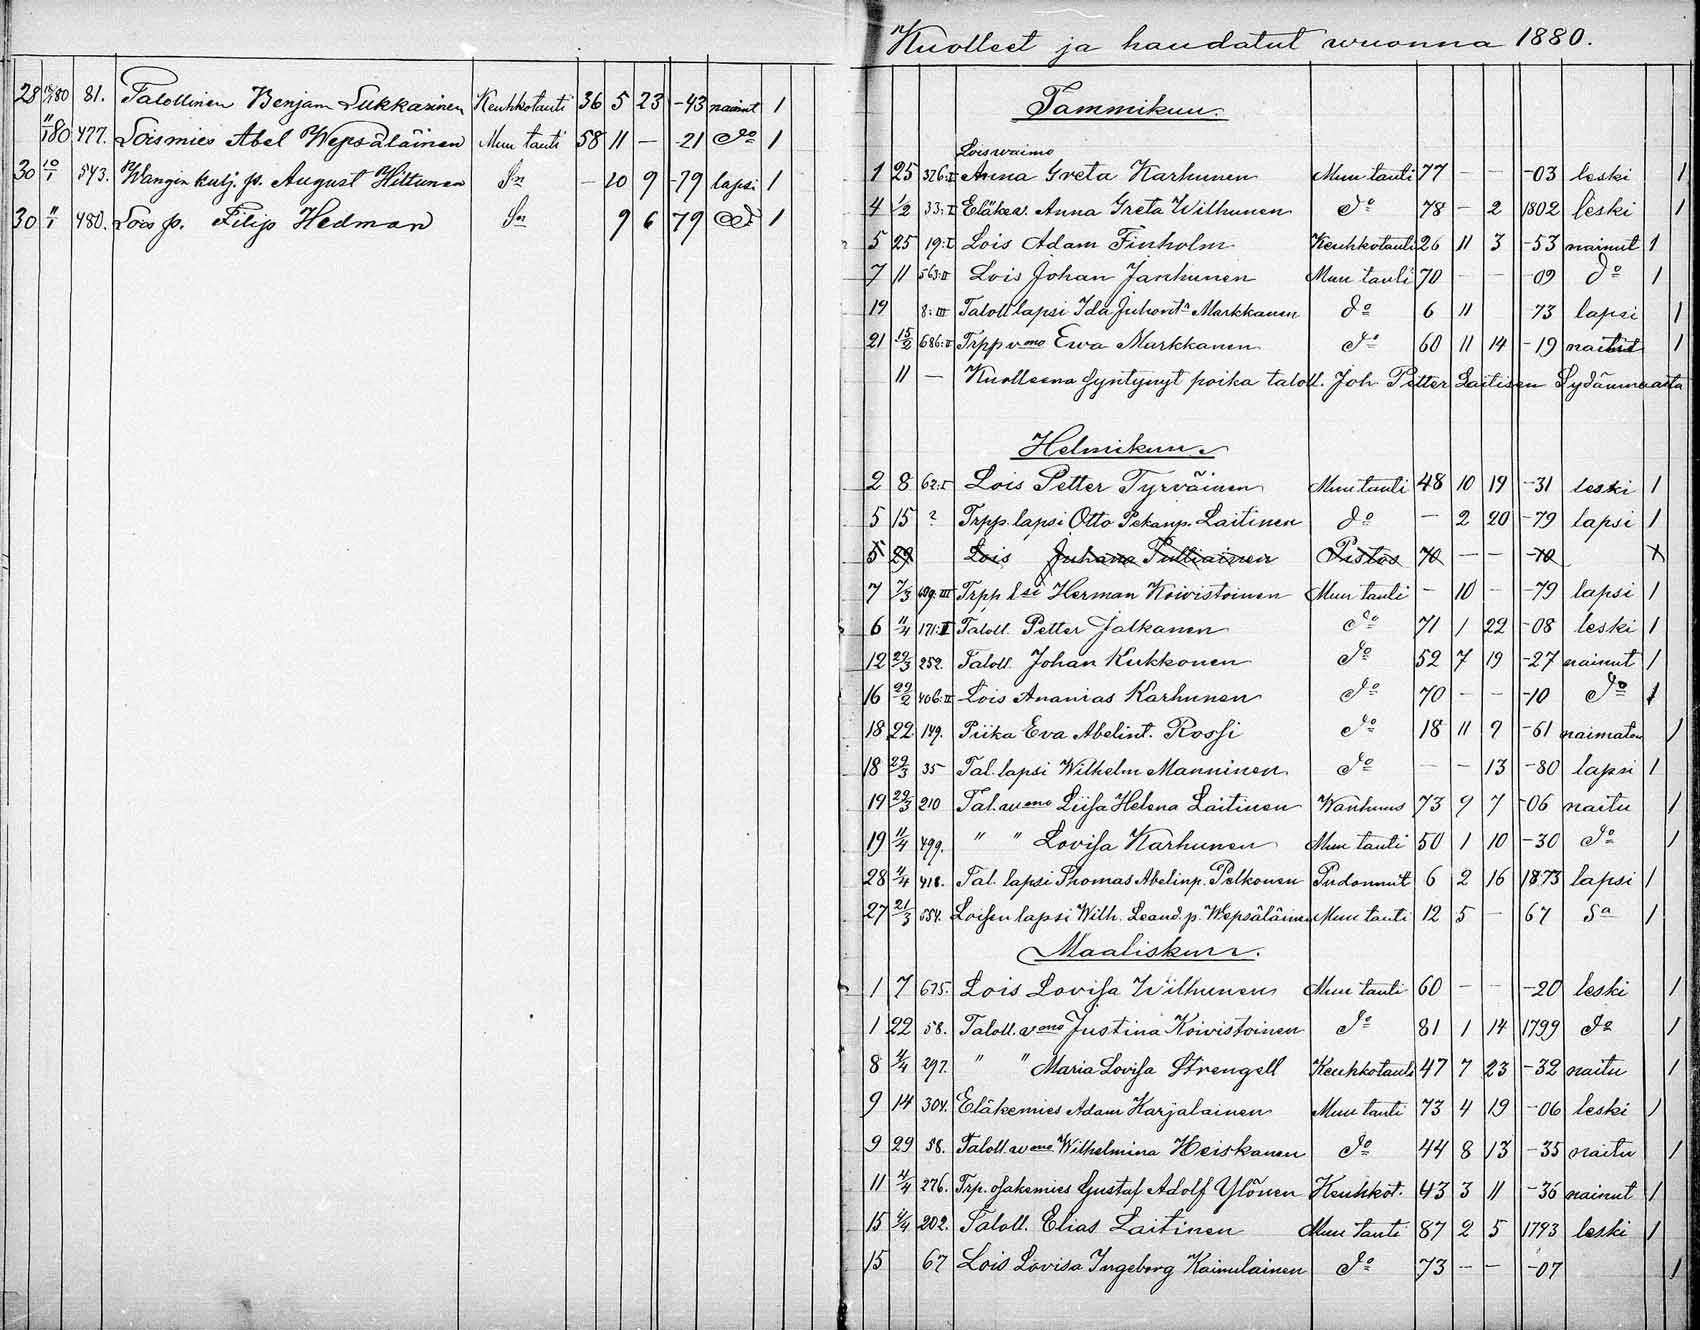 28 18/1 80 81. Talollinen Benjam Lukkarinen Keuhkotauti 36 5 23 -43 nainut 1
11/1 80 477. Loismies Abel Wepsäläinen Muu tauti 58 11 — -21 do 1
30 10/1 543. Wangin kulj. p. August Hittunen Sn — 10 9 -79 lapsi 1
30 11/1 480. Lois p. Filip Hedman Sn 9 6 79 do 1
Kuolleet ja haudatut wuonna 1880.
Tammikuu.
Loiswaimo
1 25 376:I Anna Greta Karhunen Muu tauti 77 — — -03 leski 1
4 1/2 33:I Eläkev. Anna Greta Wilhunen do 78 — 2 1802 leski 1
5 25 19:I Lois Adam Finholm Keuhkotauti 26 11 3 -53 nainut 1
7 11 563:II Lois Johan Jarhunen Muu tauti 70 — — -09 do 1
19 8:III Taloll lapsi Ida Juhont. Markkanen do 6 11 73 lapsi 1
21 15/2 686:II Trpp vmo Ewa Markkanen do 60 11 14 -19 naitu 1
11 — Kuolleena syntynyt poika taloll. Joh. Petter Laitisen Sydänmaasta
Helmikuu.
2 8 62:I Lois Petter Tyrväinen Muu tauti 48 10 19 -31 leski 1
5 15 ? Trpp. lapsi Otto Pekanp. Laitinen do — 2 20 -79 lapsi 1
5 29 Lois Juhana Pulliainen Pistos 70 — — -10
7 7/3 609:III Trpp lsi Herman Koivistoinen Muu tauti — 10 — -79 lapsi 1
6 11/4 171:II Taloll. Petter Jalkanen do 71 1 22 -08 leski 1
12 22/3 252. Taloll. Johan Kukkonen do 52 7 19 -27 nainut 1
16 22/2 406:II Lois Ananias Karhunen do 70 — — -10 do 1
18 22. 149. Piika Eva Abelint. Rossi do 18 11 2 -61 naimaton 1
18 22/3 35 Tal. lapsi Wilhelm Manninen do — — 13 -80 lapsi 1
19 22/3 210 Tal. wmo Liisa Helena Laitinen Wanhuus 73 9 7 -06 naitu 1
19 11/4 499. " " Lovisa Karhunen Muu tauti 50 1 10 -30 do 1
28 4/4 418. Tal. lapsi Thomas Abelinp. Pelkonen Pudonnut 6 2 16 1873 lapsi 1
27 21/3 554. Loisen lapsi Wilh. Leand. p. Wepsäläinen Muu tauti 12 5 — 67 Sa 1
Maaliskuu.
1 7 675. Lois Lovisa Wilhunen Muu tauti 60 — — -20 leski 1
1 22 58. Taloll. vmo Justina Koivistoinen do 81 1 14 1799 do 1
8 4/4 297. " " Maria Lovisa Strengell Keuhkotauti 47 7 23 -32 naitu 1
9 14 304. Eläkemies Adam Karjalainen Muu tauti 73 4 19 -06 leski 1
9 29 58. Taloll. wmo Wilhelmina Heiskanen do 44 8 13 -35 naitu 1
11 4/4 276. Trp. osakemies Gustaf Adolf Ylönen Keuhkot. 43 3 11 -36 nainut 1
15 4/4 202. Taloll. Elias Laitinen Muu tauti 87 2 5 1793 leski 1
15 67 Lois Lovisa Ingeborg Kainulainen do 73 — — -07 1